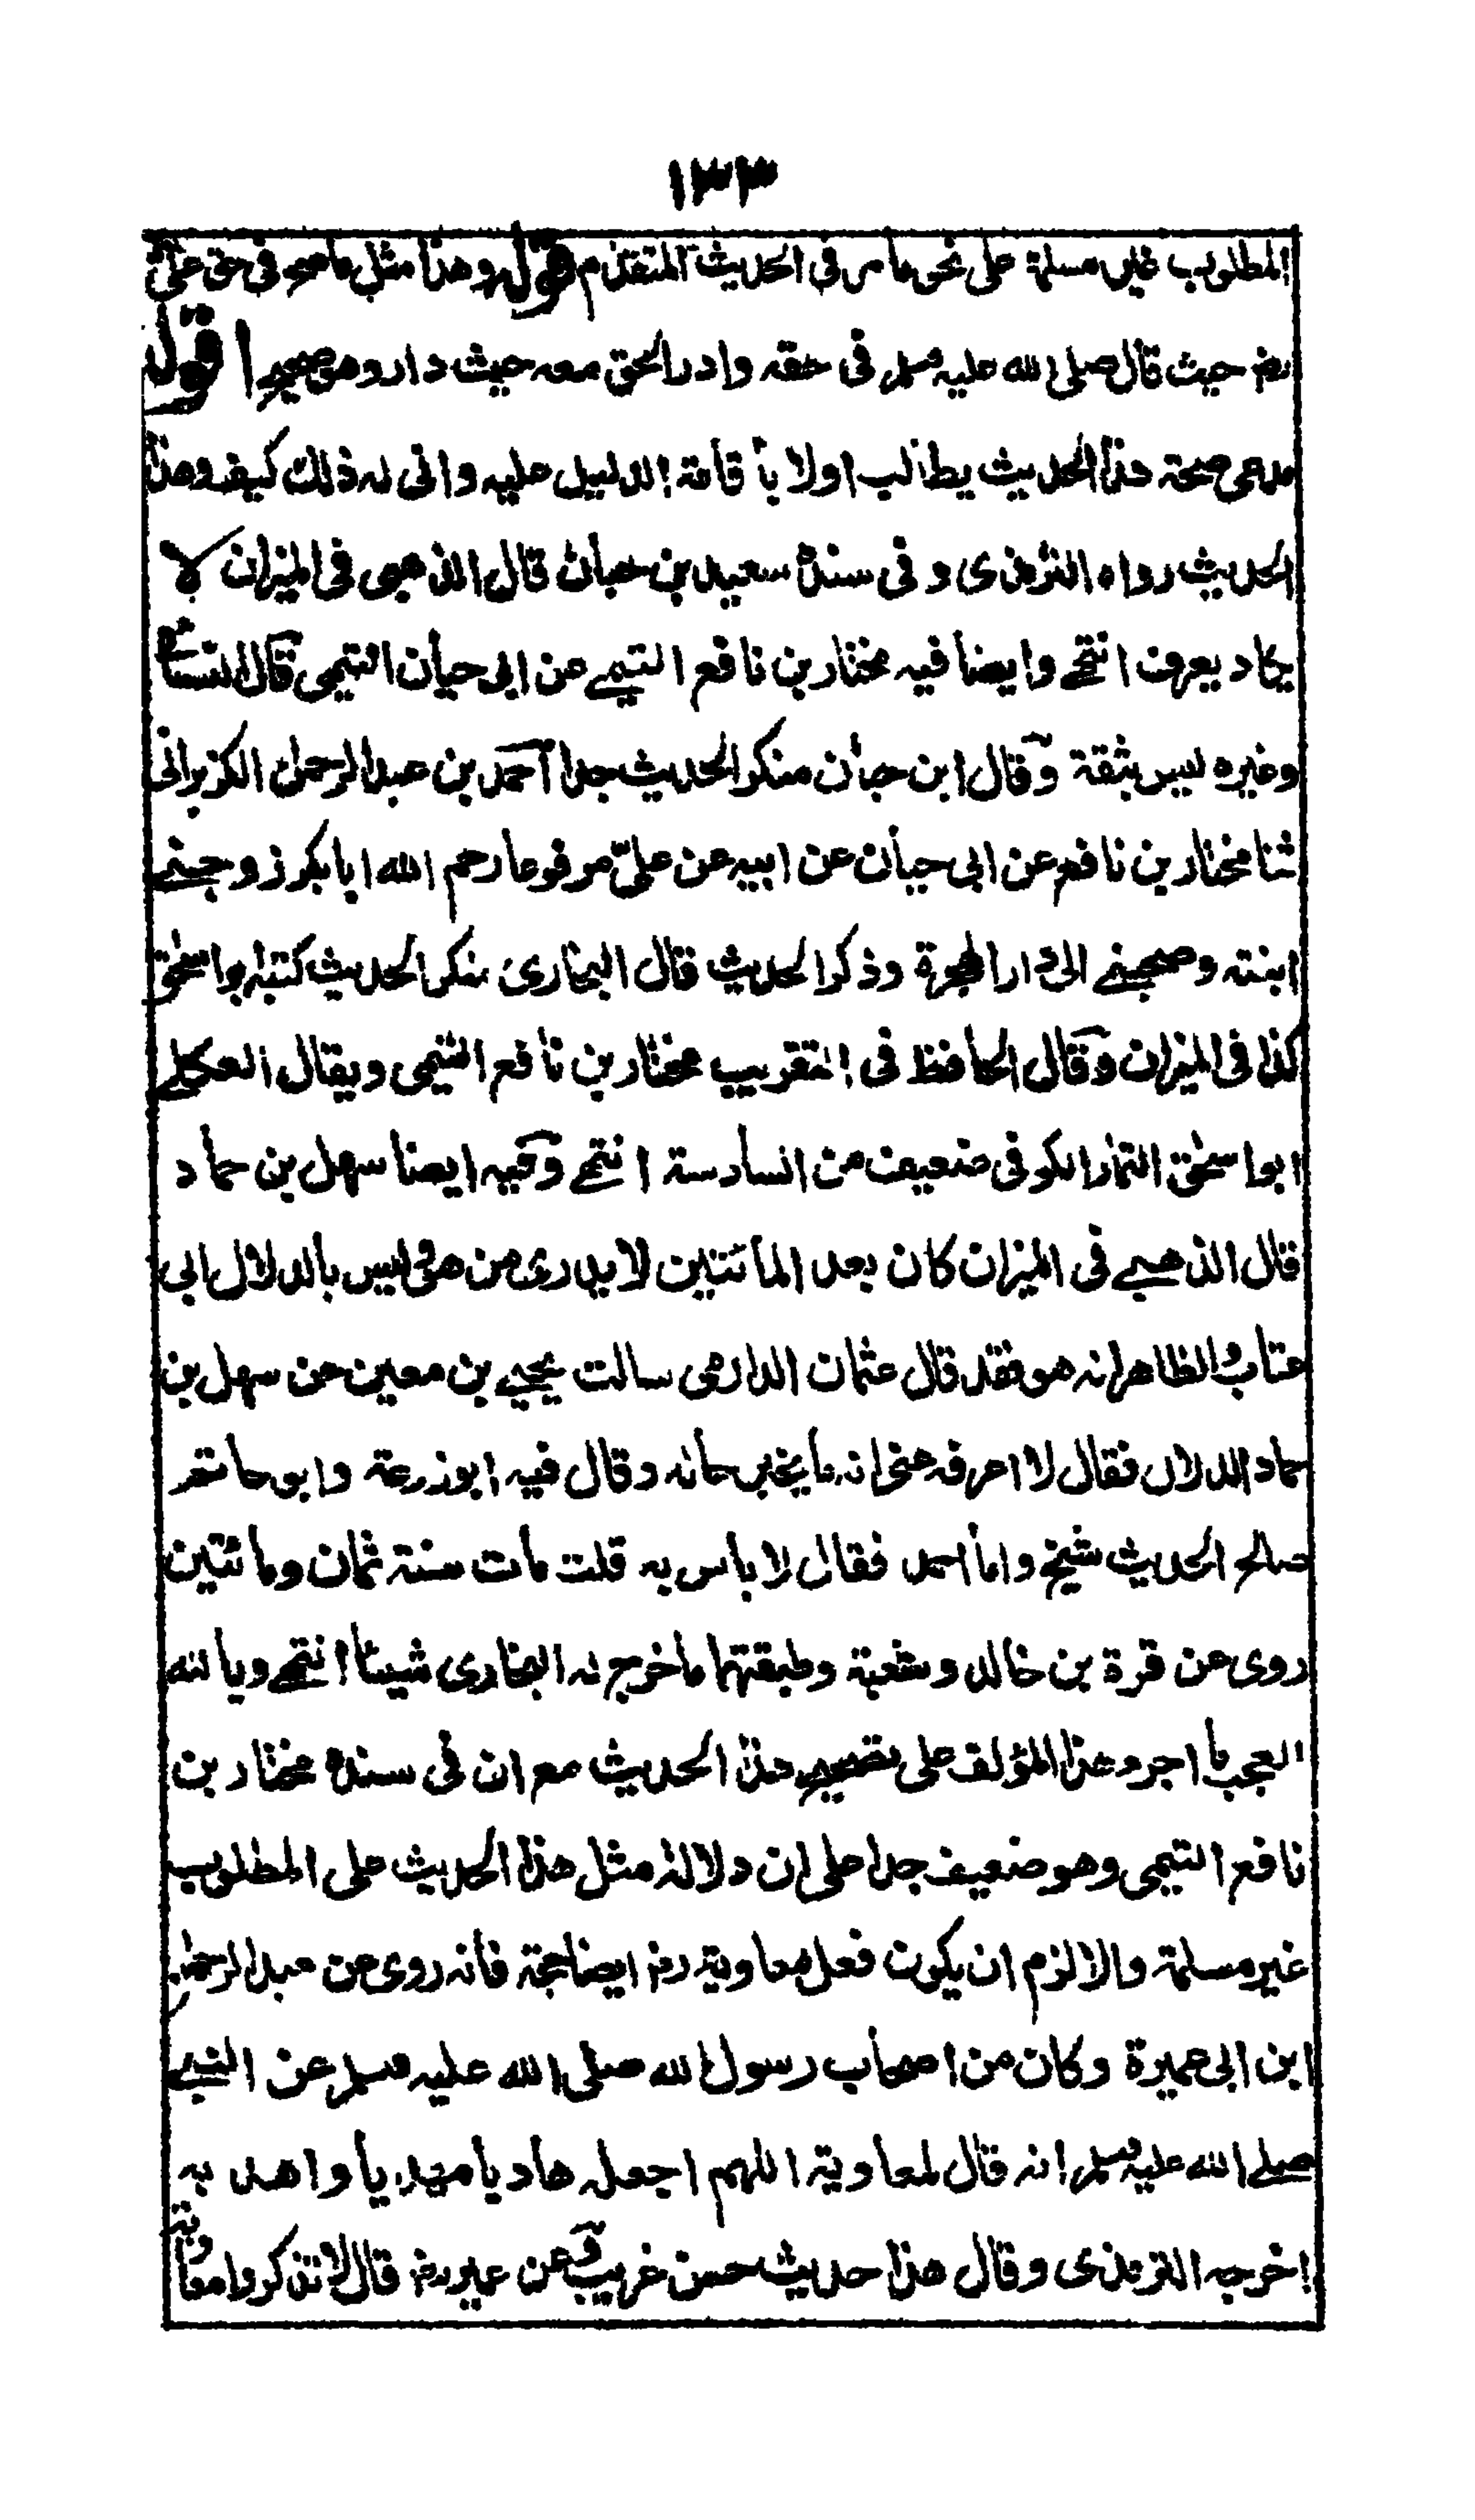 ١٣٣
المطلوب غير مسلمة على نحو ما مر فى الحديث المتقدم قوله وهذا مثل ما صح فى حق على
رض حيث قال صلى الله عليه وسلم فى حقه وادر الحق معه حيث دار وهو صحيح اقول
مدعى صحة هذا الحديث يطالب اولا باقامة الدليل عليه وانى له ذلك كيف وهذا
الحديث رواه الترمذى وفى سنده سعيد بن حبان قال الذهبى فى الميزان لا
يكاد يعرف انتهى وايضا فيه مختار بن نافع التيمى عن ابى حيان التيمى قال النسائى
وغيره ليس بثقة وقال ابن حبان منكر الحديث جدا احمد بن عبد الرحمن الكزبرانى
ثنا مختار بن نافع عن ابى حيان عن ابيه عن علىّ مرفوعا رحم الله ابا بكر زوجنى
ابنته وصحبنى الى دار الهجرة وذكر الحديث قال البخارى منكر الحديث كنيته ابو اسحق
كذا فى الميزان وقال الحافظ فى التقريب مختار بن نافع التيمى ويقال العكلى
ابو اسحق التمار الكوفى ضعيف من السادسة انتهى وفيه ايضا سهل بن حماد
قال الذهبى فى الميزان كان بعد المائتين لا يدرى من هو ليس بالدلال ابى
عتاب والظاهر انه هو فقد قال عثمان الدارمى سالت يحيى بن معين عن سهل بن
حماد الدلال فقال لا اعرفه عنى انه ما يخبر حاله وقال فيه ابو زرعة وابو حاتم
صالح الحديث شيخ واما احمد فقال لا باس به قلت مات سنة ثمان ومائتين
روى عن قرة بن خالد وشعبة وطبقتهما ما خرج له البخارى شيئا انتهى ويا لله
العجب ما اجرء هذا المؤلف على تصحيح هذا الحديث مع ان فى سنده مختار بن
نافع التيمى وهو ضعيف جدا على ان دلالة مثل هذا الحديث على المطلوب
غير مسلمة والا لزم ان يكون فعل معاوية رض ايضا حجة فانه روى عن عبد الرحمن
ابن ابى عميرة وكان من اصحاب رسول الله صلى الله عليه وسلم عن النبى
صلى الله عليه وسلم انه قال لمعاوية اللهم اجعله هاديا مهديا واهد به
اخرجه الترمذى وقال هذا حديث حسن غريب وعن عمير رض قال لا تذكروا معاوية